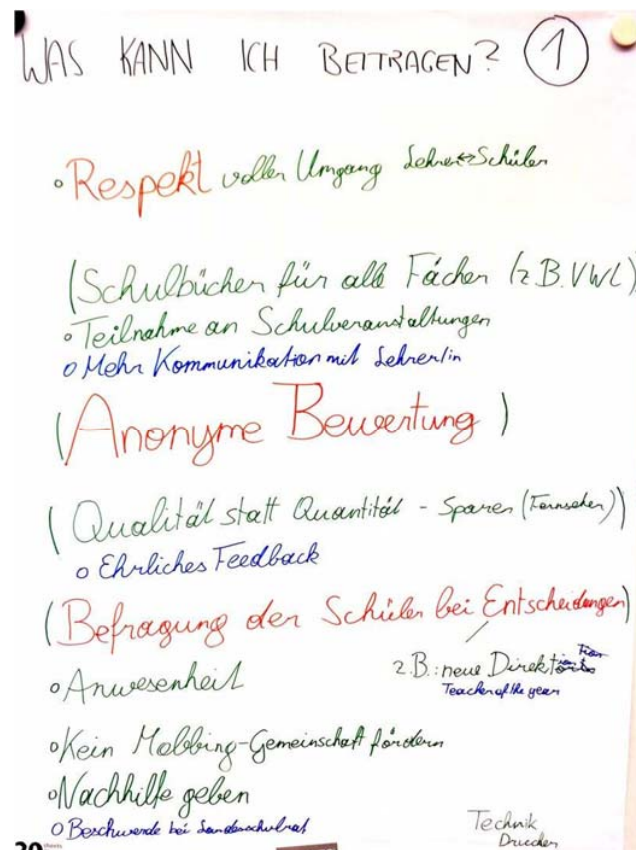 WAS KANN ICH BEITRAGEN? 1
Respekt voller Umgang Lehrer↔Schüler
(Schulbücher für alle Fächer (z.B. VWL)
Teilnahme an Schulveranstaltungen
Mehr Kommunikation mit Lehrer/in
(Anonyme Bewertung)
(Qualität statt Quantität - Sparen (Fernseher))
Ehrliches Feedback
(Befragung der Schüler bei Entscheidungen)
z.B.: neue Direktion
Anwesenheit
Teacher of the year
Kein Mobbing-Gemeinschaft fördern
Nachhilfe geben
Beschwerde bei Landesschulrat
Technik
Drucker
20 sheets